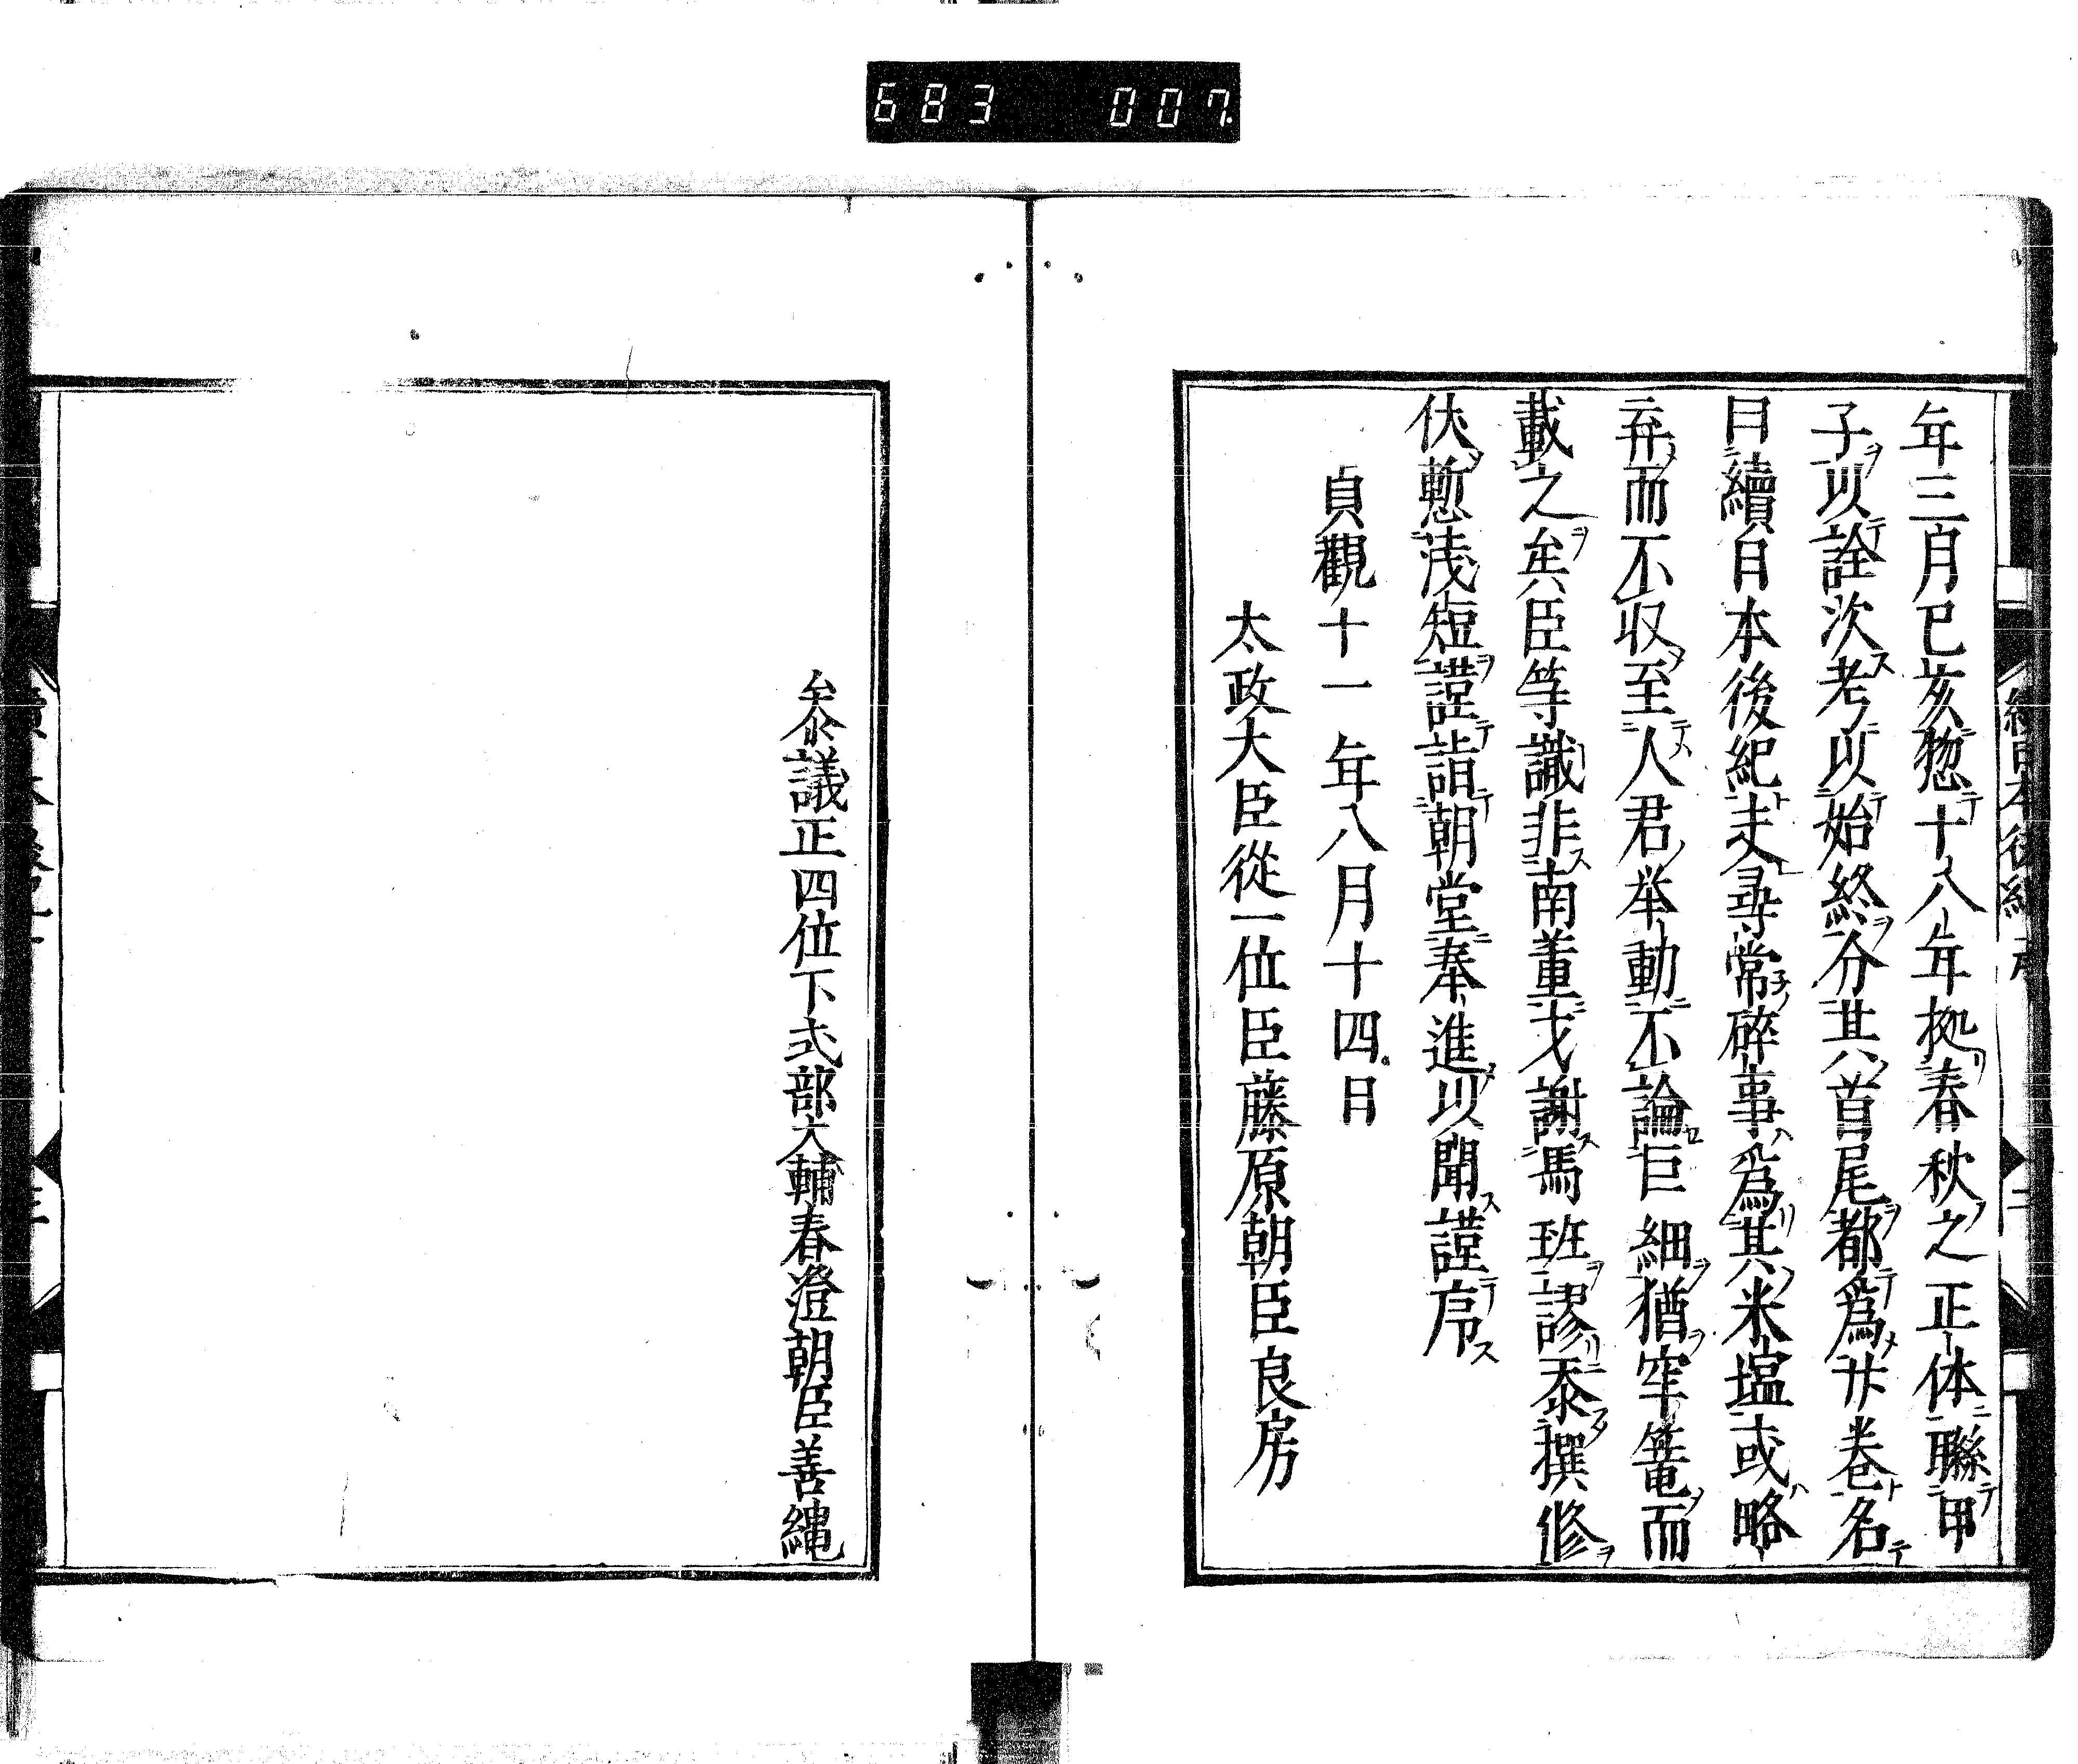 683 007
年三月己亥惣十八年拠春秋之正体聯甲
子以詮次考以始終分其首尾都爲廿卷名
曰續日本後紀夫尋常碎事爲其米塩或略
弃而不収至人君举動不論巨細猶牢篭而
載之矣臣等識非南董才謝馬班謬忝撰修
伏慙浅短謹詣朝堂奉進以聞謹序
貞觀十一年八月十四日
太政大臣從一位臣藤原朝臣良房
參議正四位下式部大輔春澄朝臣善縄